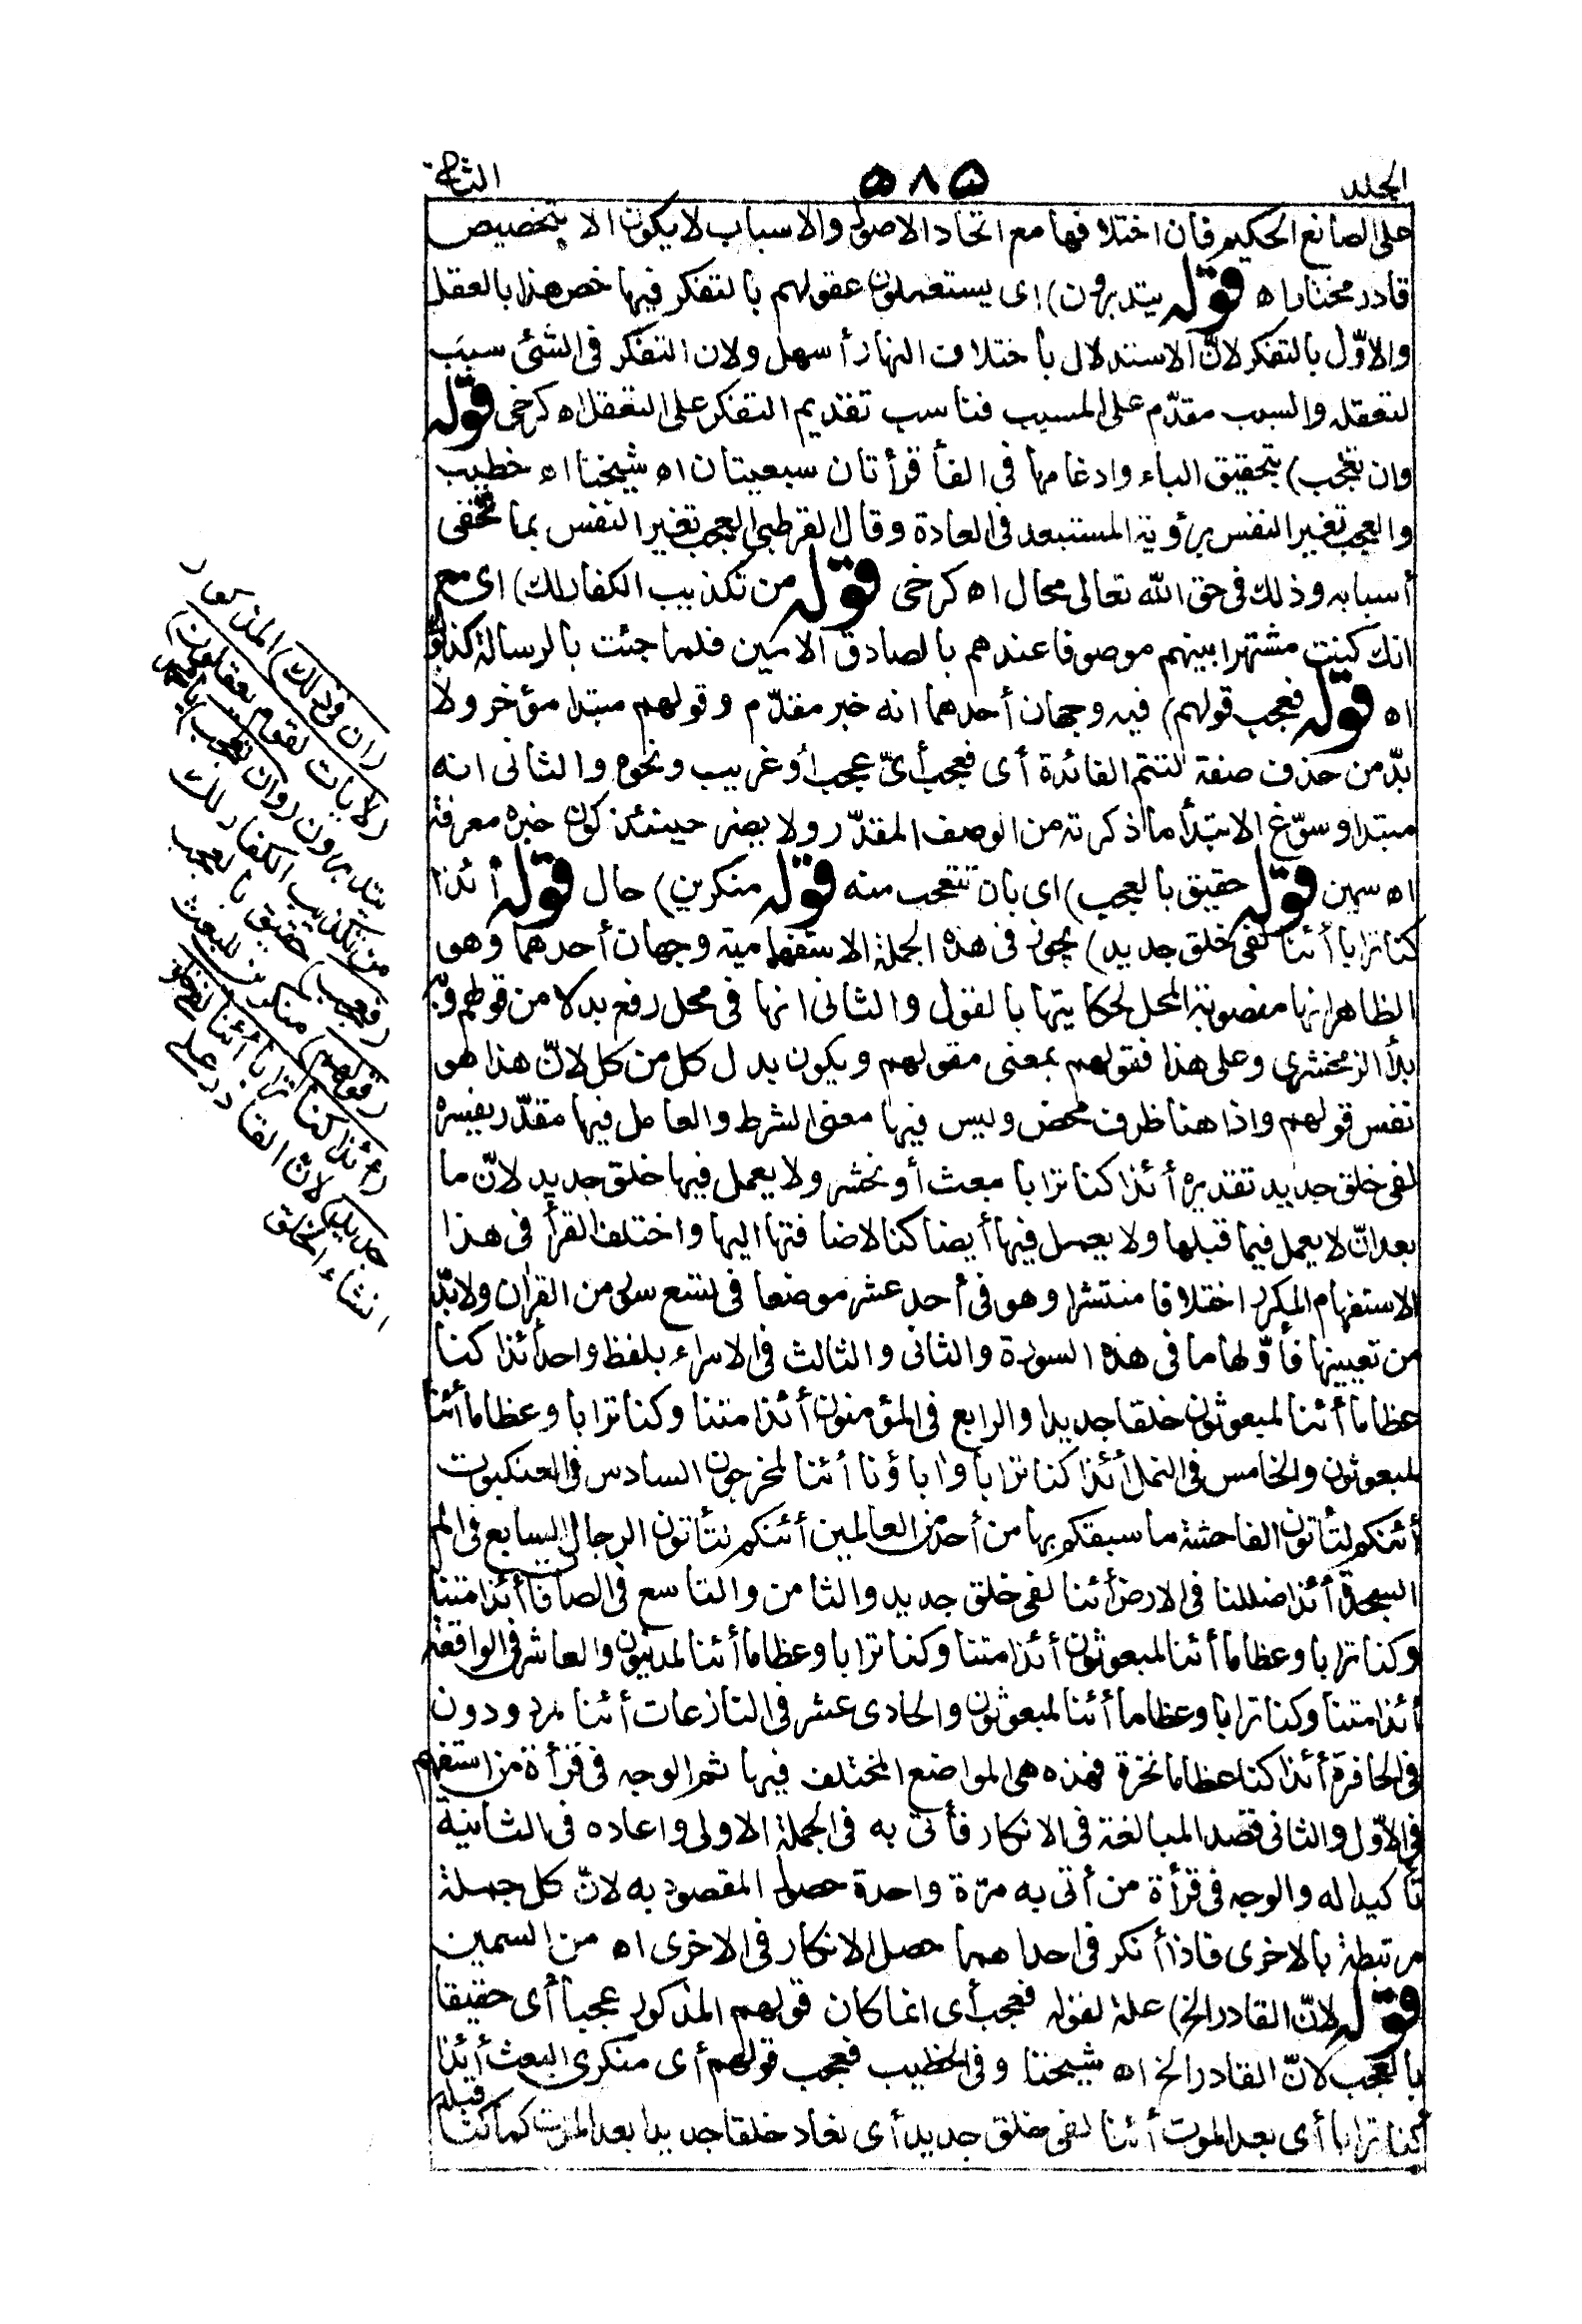 الجلد ۵۸۵ الثانى
على الصانع الحكيم فان اختلافها مع اتحاد الاصول والاسباب لا يكون الا بتخصيص
قادر مختار اه قوله يتدبرون) اى يستعملون عقولهم بالتفكر فيها خص هذا بالعقل
والاوّل بالتفكر لانّ الاستدلال باختلاف النهار أسهل ولان التفكر فى الشئ سبب
لتعقله والسبب مقدّم على المسبب فناسب تقديم التفكر على التعقل اه كرخى قوله
وان تعجب) بتحقيق الباء وادغامها فى الفأ قرأتان سبعيتان اه شيخنا اه خطيب
والعجب تغير النفس برؤية المستبعد فى العادة وقال القرطبى العجب تغير النفس بما تخفى
أسبابه وذلك فى حق الله تعالى محال اه كرخى قوله من تكذيب الكفار لك) اى مع
انك كنت مشتهرا بينهم موصوفا عندهم بالصادق الامين فلما جئت بالرسالة كذبوك
اه قوله فعجب قولهم) فيه وجهان أحدهما انه خبر مقدّم وقولهم مبتدا مؤخر ولا
بدّ من حذف صفة لتتم الفائدة أى فعجب أىّ عجب أو غريب ونحوه والثانى انه
مبتدا وسوّغ الابتدأ ما ذكرته من الوصف المقدّر ولا يضر حينئذ كون خبره معرفة
اه سمين قوله حقيق بالعجب) اى بان تتعجب منه قوله منكرين) حال قوله أئذا
كنا ترابا أئنا لفى خلق جديد) يجوز فى هذه الجملة الاستفهامية وجهان أحدهما وهو
الظاهر انها منصوبة المحل لحكايتها بالقول والثانى انها فى محل رفع بدلا من قولهم وبه
بدأ الزمخشرى وعلى هذا فقولهم بمعنى مقولهم ويكون بدل كل من كل لانّ هذا هو
نفس قولهم واذا هنا ظرف محض وليس فيها معنى الشرط والعامل فيها مقدّر يفسره
لفى خلق جديد تقديره أئذا كنا ترابا مبعث أو نحشر ولا يعمل فيها خلق جديد لانّ ما
بعد انّ لا يعمل فيما قبلها ولا يعمل فيها أيضا كنا لاضافتها اليها واختلف القرأ فى هذا
الاستفهام المكرر اختلافا منتشرا وهو فى أحد عشر موضعا فى تسع سور من القران ولا بدّ
من تعيينها فأوّلها ما فى هذه السورة والثانى والثالث فى الاسراء بلفظ واحد أئذا كنا
عظاما أئنا لمبعوثون خلقا جديدا والرابع فى المؤمنون أئذا متنا وكنا ترابا وعظاما أئنا
لمبعوثون والخامس فى النمل أئذا كنا ترابا واباؤنا أئنا لمخرجون السادس فى العنكبوت
أئنكم لتأتون الفاحشة ما سبقكم بها من أحد من العالمين أئنكم لتأتون الرجال السابع فى الم
السجدة أئذا ضللنا فى الارض أئنا لفى خلق جديد والثامن والتاسع فى الصافا أئذا متنا
وكنا ترابا وعظاما أئنا لمبعوثون أئذا متنا وكنا ترابا وعظاما أئنا لمدينون والعاشر فى الواقعة
أئذا متنا وكنا ترابا وعظاما أئنا لمبعوثون والحادى عشر فى النازعات أئنا لمردودون
فى الحافرة أئذا كنا عظاما نخرة فهذه هى المواضع المختلف فيها ثم الوجه فى قرأة من استفهم
فى الاوّل والثانى قصد المبالغة فى الانكار فأتى به فى الجملة الاولى واعاده فى الثانية
تأكيدا له والوجه فى قرأة من أتى به مرّة واحدة حصول المقصود به لانّ كل جملة
مرتبطة بالاخرى فاذا أنكر فى احداهما حصل الانكار فى الاخرى اه من السمين
قوله لانّ القادر الخ) علة لقوله فعجب أى انما كان قولهم المذكور عجبا أى حقيقا
بالعجب لانّ القادر الخ اه شيخنا وفى الخطيب فعجب قولهم أى منكرى البعث أئذا
كنا ترابا أى بعد الموت أئنا لفى خلق جديد أى نعاد خلقا جديدا بعد الموت كما كنا قبله
(ان فى ذلك) المذكور
(لايات لقوم يعقلون)
يتدبرون (وان تعجب) يا محمد
من تكذيب الكفار لك
(فعجب) حقيق بالعجب
(قولهم) منكرين للبعث
(أئذا كنا ترابا أئنا لفى خلق
جديد) لانّ القادر على
انشاء الخلق